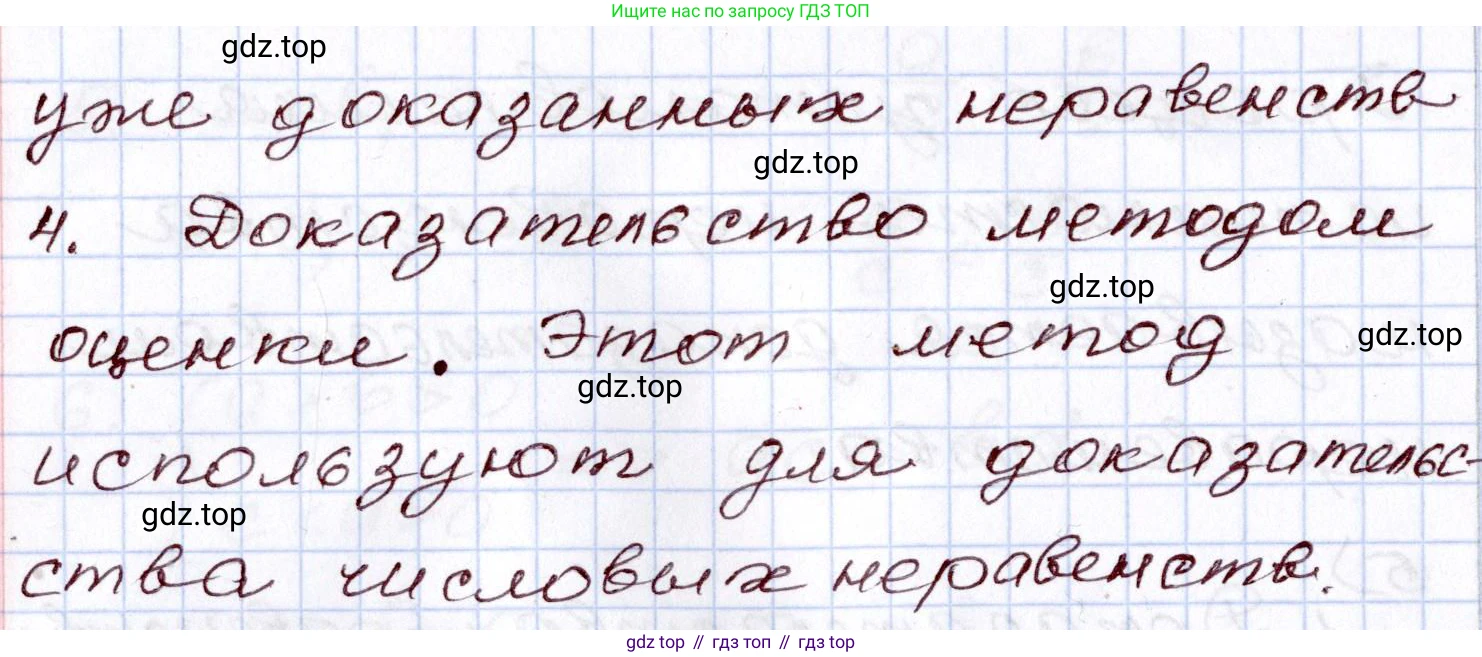 Ищите нас по запросу ГДЗ ТОП
gdz.top
уже доказанных неравенств
gdz.top
4. Доказательство методом
gdz.top
оценки. Этот метод
gdz.top
gdz.top
используют для доказательс-
gdz.top
ства числовых неравенств.
gdz top // гдз топ // гдз top